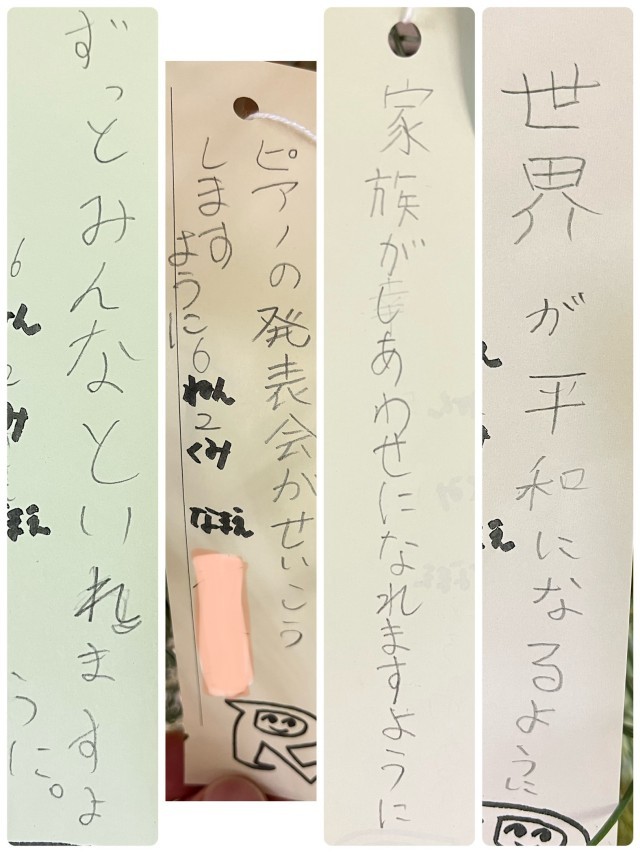 ずっとみんなといれますよ
うに。
6
2
ピアノの発表会がせいこう
しますように
6ねん2くみ なまえ
家族がしあわせになれますように
世界が平和になるように